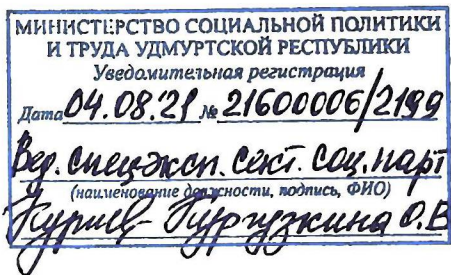 МИНИСТЕРСТВО СОЦИАЛЬНОЙ ПОЛИТИКИ
И ТРУДА УДМУРТСКОЙ РЕСПУБЛИКИ
Уведомительная регистрация
Дата 04.08.21 № 21600006/2199
Вед. спецэксп. сект. соц. парт
(наименование должности, подпись, ФИО)
О.В